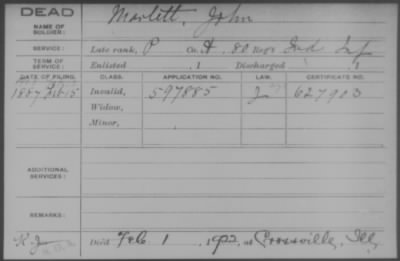 DEAD
NAME OF SOLDIER: Marlett, John
SERVICE: Late rank, P Co. H, 80 Reg't Ind Inf
TERM OF SERVICE: Enlisted , 1 Discharged , 1
DATE OF FILING. CLASS. APPLICATION NO. LAW. CERTIFICATE NO.
1887 Feb 15 Invalid, 597885 627903
Widow,
Minor,
ADDITIONAL SERVICES:
REMARKS:
Died Feb 1, 1922, at Crossville, Ill